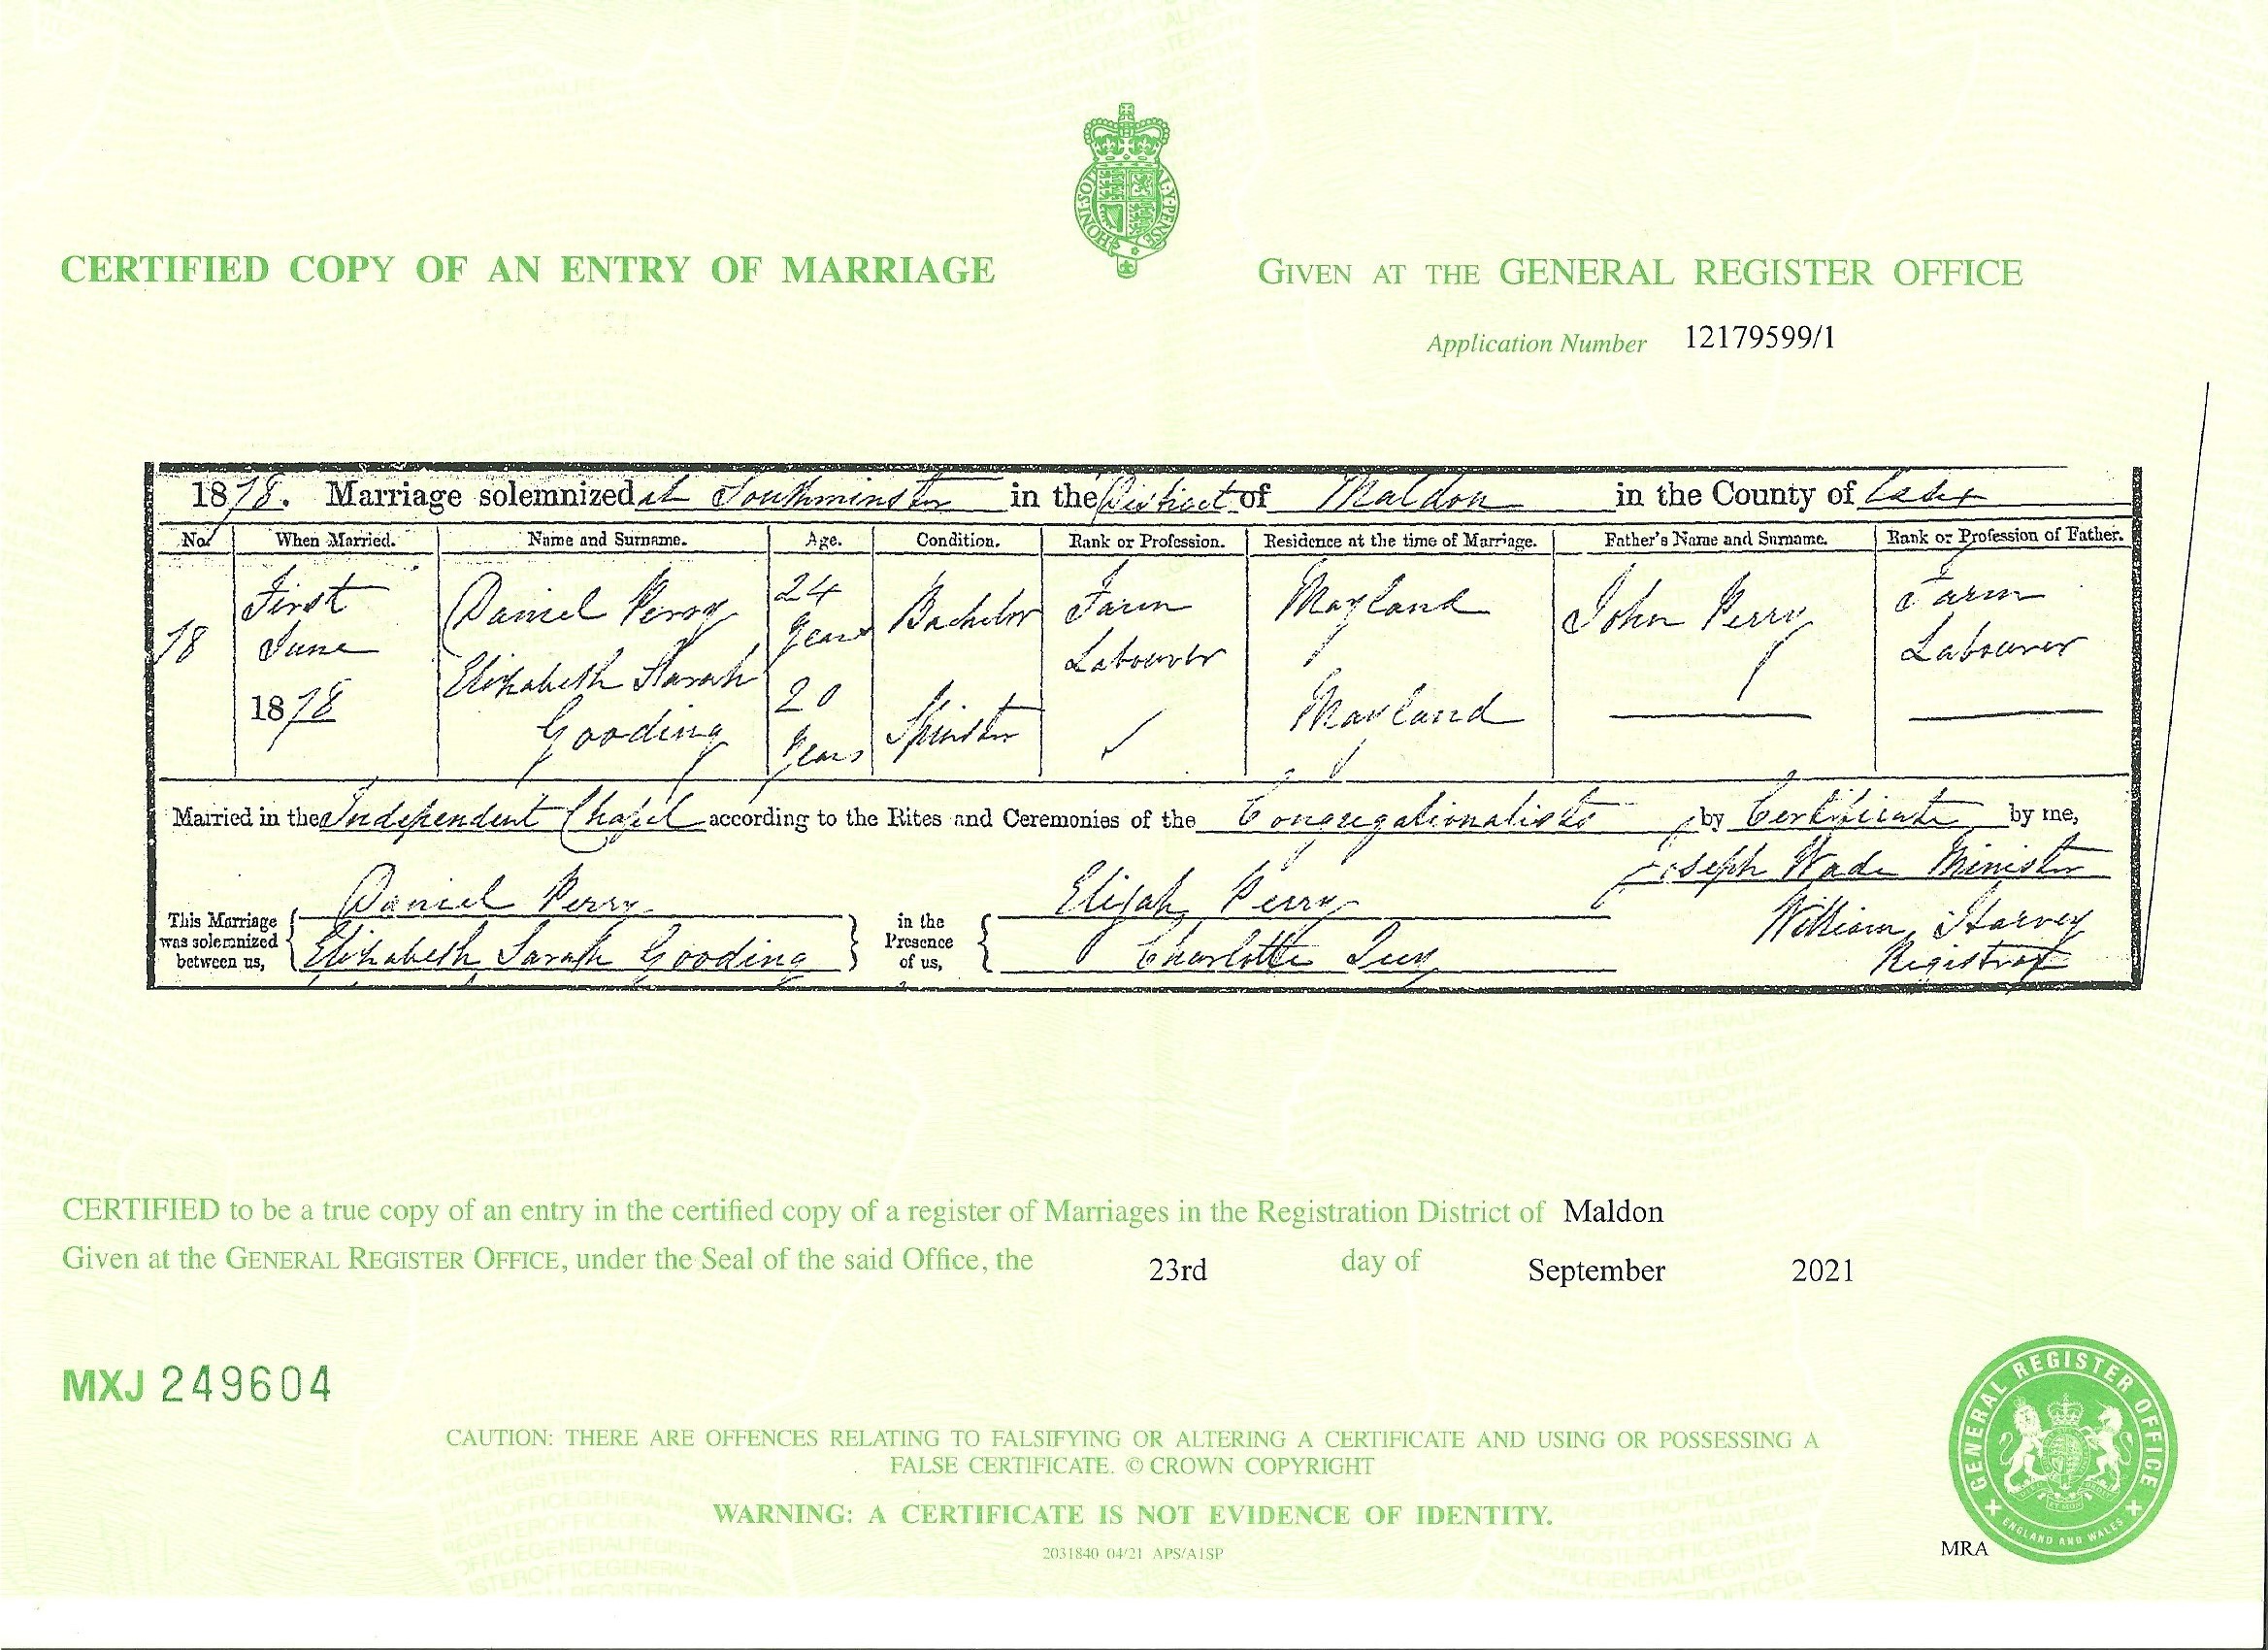 HONI·SOI AL·Y·PENSE
CERTIFIED COPY OF AN ENTRY OF MARRIAGE
GIVEN AT THE GENERAL REGISTER OFFICE
Application Number 12179599/1
1878. Marriage solemnized at Southminster in the District of Maldon in the County of Essex
No. When Married. Name and Surname. Age. Condition. Rank or Profession. Residence at the time of Marriage. Father's Name and Surname. Rank or Profession of Father.
78 First June 1878
Daniel Perry 24 years Bachelor Farm Labourer Mayland John Perry Farm Labourer
Elizabeth Sarah Gooding 20 years Spinster ✓ Mayland — —
Married in the Independent Chapel according to the Rites and Ceremonies of the Congregationalists by Certificate by me,
Joseph Wade Minister
William Harvey
Registrar
This Marriage was solemnized between us,
Daniel Perry
Elizabeth Sarah Gooding
in the Presence of us,
Elijah Perry
Charlotte
CERTIFIED to be a true copy of an entry in the certified copy of a register of Marriages in the Registration District of Maldon
Given at the GENERAL REGISTER OFFICE, under the Seal of the said Office, the 23rd day of September 2021
MXJ 249604
CAUTION: THERE ARE OFFENCES RELATING TO FALSIFYING OR ALTERING A CERTIFICATE AND USING OR POSSESSING A
FALSE CERTIFICATE. © CROWN COPYRIGHT
WARNING: A CERTIFICATE IS NOT EVIDENCE OF IDENTITY.
2031840 04/21 APS/A1SP
MRA
GENERAL REGISTER OFFICE
ENGLAND AND WALES